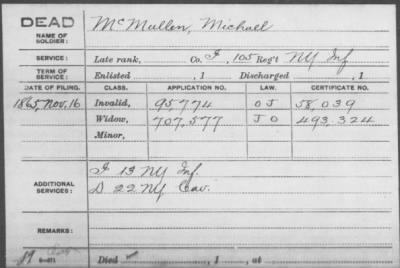 DEAD
NAME OF SOLDIER:
McMullen, Michael
SERVICE:
Late rank, Co. I, 105 Reg't NY Inf
TERM OF SERVICE:
Enlisted , 1 Discharged , 1
DATE OF FILING. CLASS. APPLICATION NO. LAW. CERTIFICATE NO.
1865, Nov. 16 Invalid, 95774 O J 58,039
Widow, 707,577 J O 493,324
Minor,
ADDITIONAL SERVICES:
I 13 NY Inf.
D 22 NY Cav.
REMARKS:
Died , 1 , at